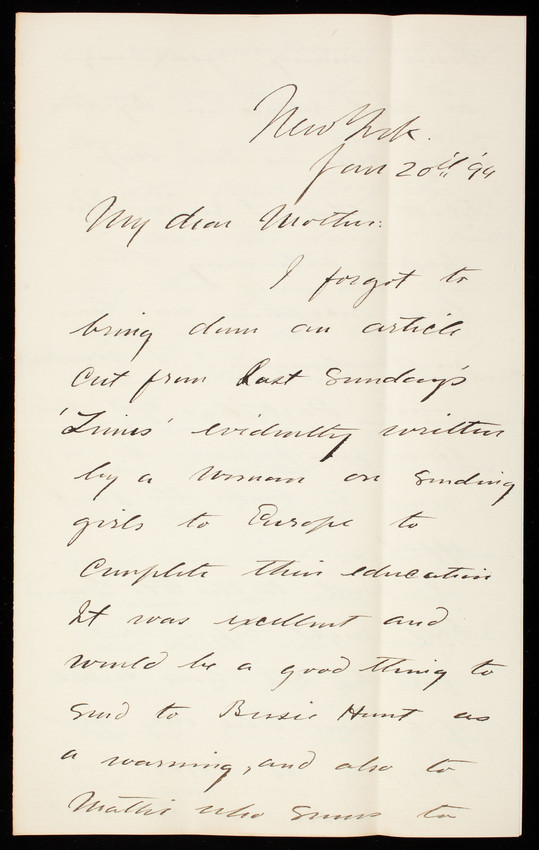 New York.
Jan 20th '94
My dear Mother:
I forgot to
bring down an article
cut from last Sunday's
'Times' evidently written
by a woman on sending
girls to Europe to
complete their education
It was excellent and
would be a good thing to
send to Bessie Hunt as
a warning, and also to
Mattie who seems to